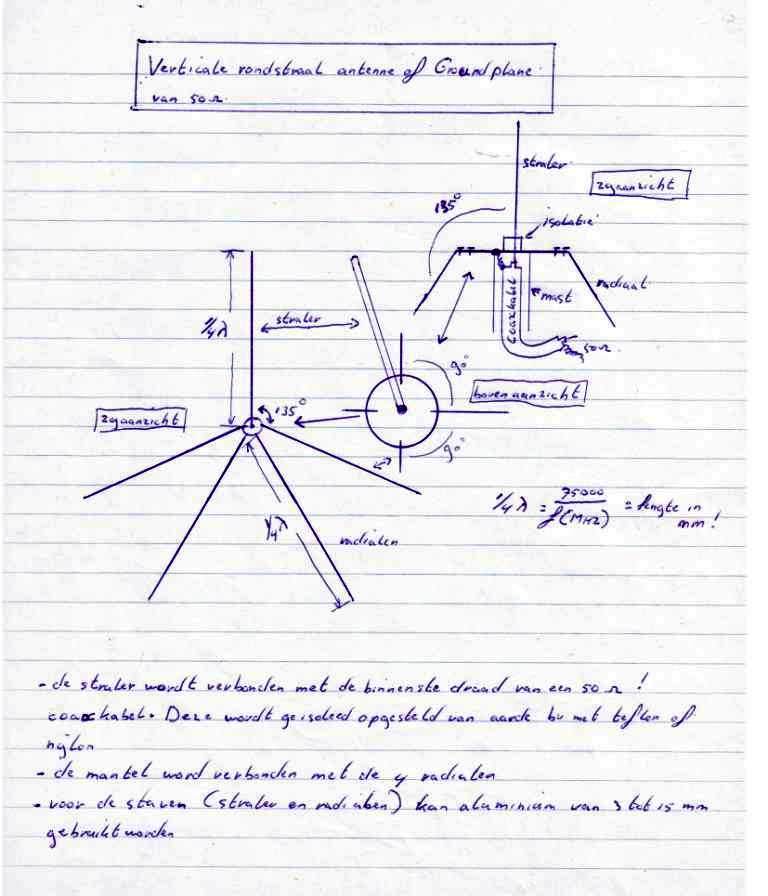 Verticale rondstraal antenne of Groundplane
van 50 Ω
straler
zyaanzicht
135°
isolatie
radiaal
mast
coaxkabel
50Ω
1/4 λ
straler
90°
bovenaanzicht
zyaanzicht
135°
90°
1/4 λ = 75000 / f(MHz) = lengte in
mm!
1/4 λ
radialen
- de straler wordt verbonden met de binnenste draad van een 50 Ω !
coaxkabel. Deze wordt geisoleed opgesteld van aarde bv met teflon of
nijlon
- de mantel word verbonden met de 4 radialen
- voor de staven (straler en radialen) kan aluminium van 3 tot 15 mm
gebruikt worden